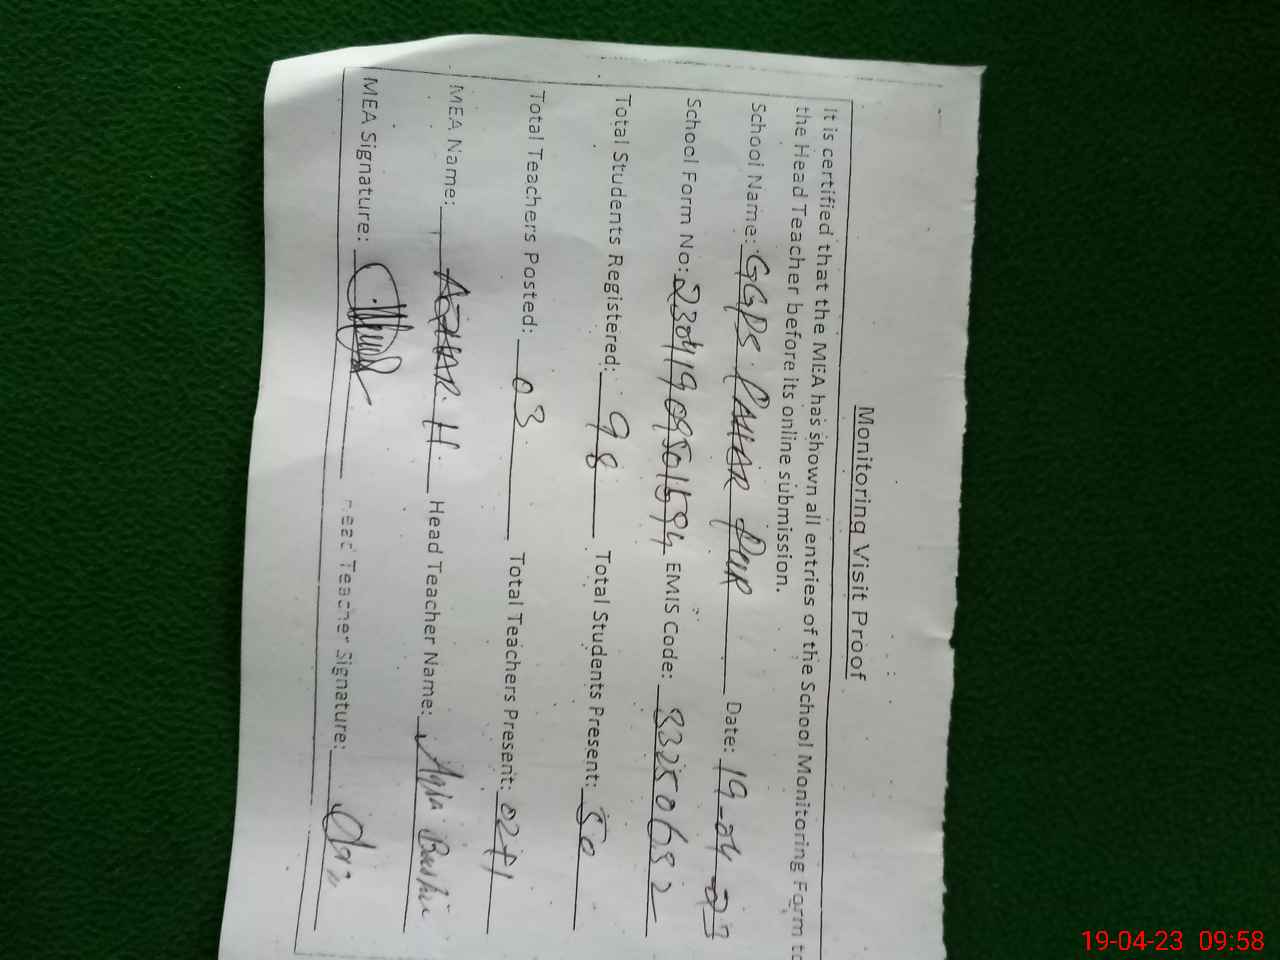 Monitoring Visit Proof
It is certified that the MEA has shown all entries of the School Monitoring Form to
the Head Teacher before its online submission.
School Name: GGPS PAHAR PUR Date: 19-04-23
School Form No: 23041909501594 EMIS Code: 33250632
Total Students Registered: 98 Total Students Present: 50
Total Teachers Posted: 03 Total Teachers Present: 02+1
MEA Name: AZHAR H Head Teacher Name: Bushir
MEA Signature: Head Teacher Signature:
19-04-23 09:58